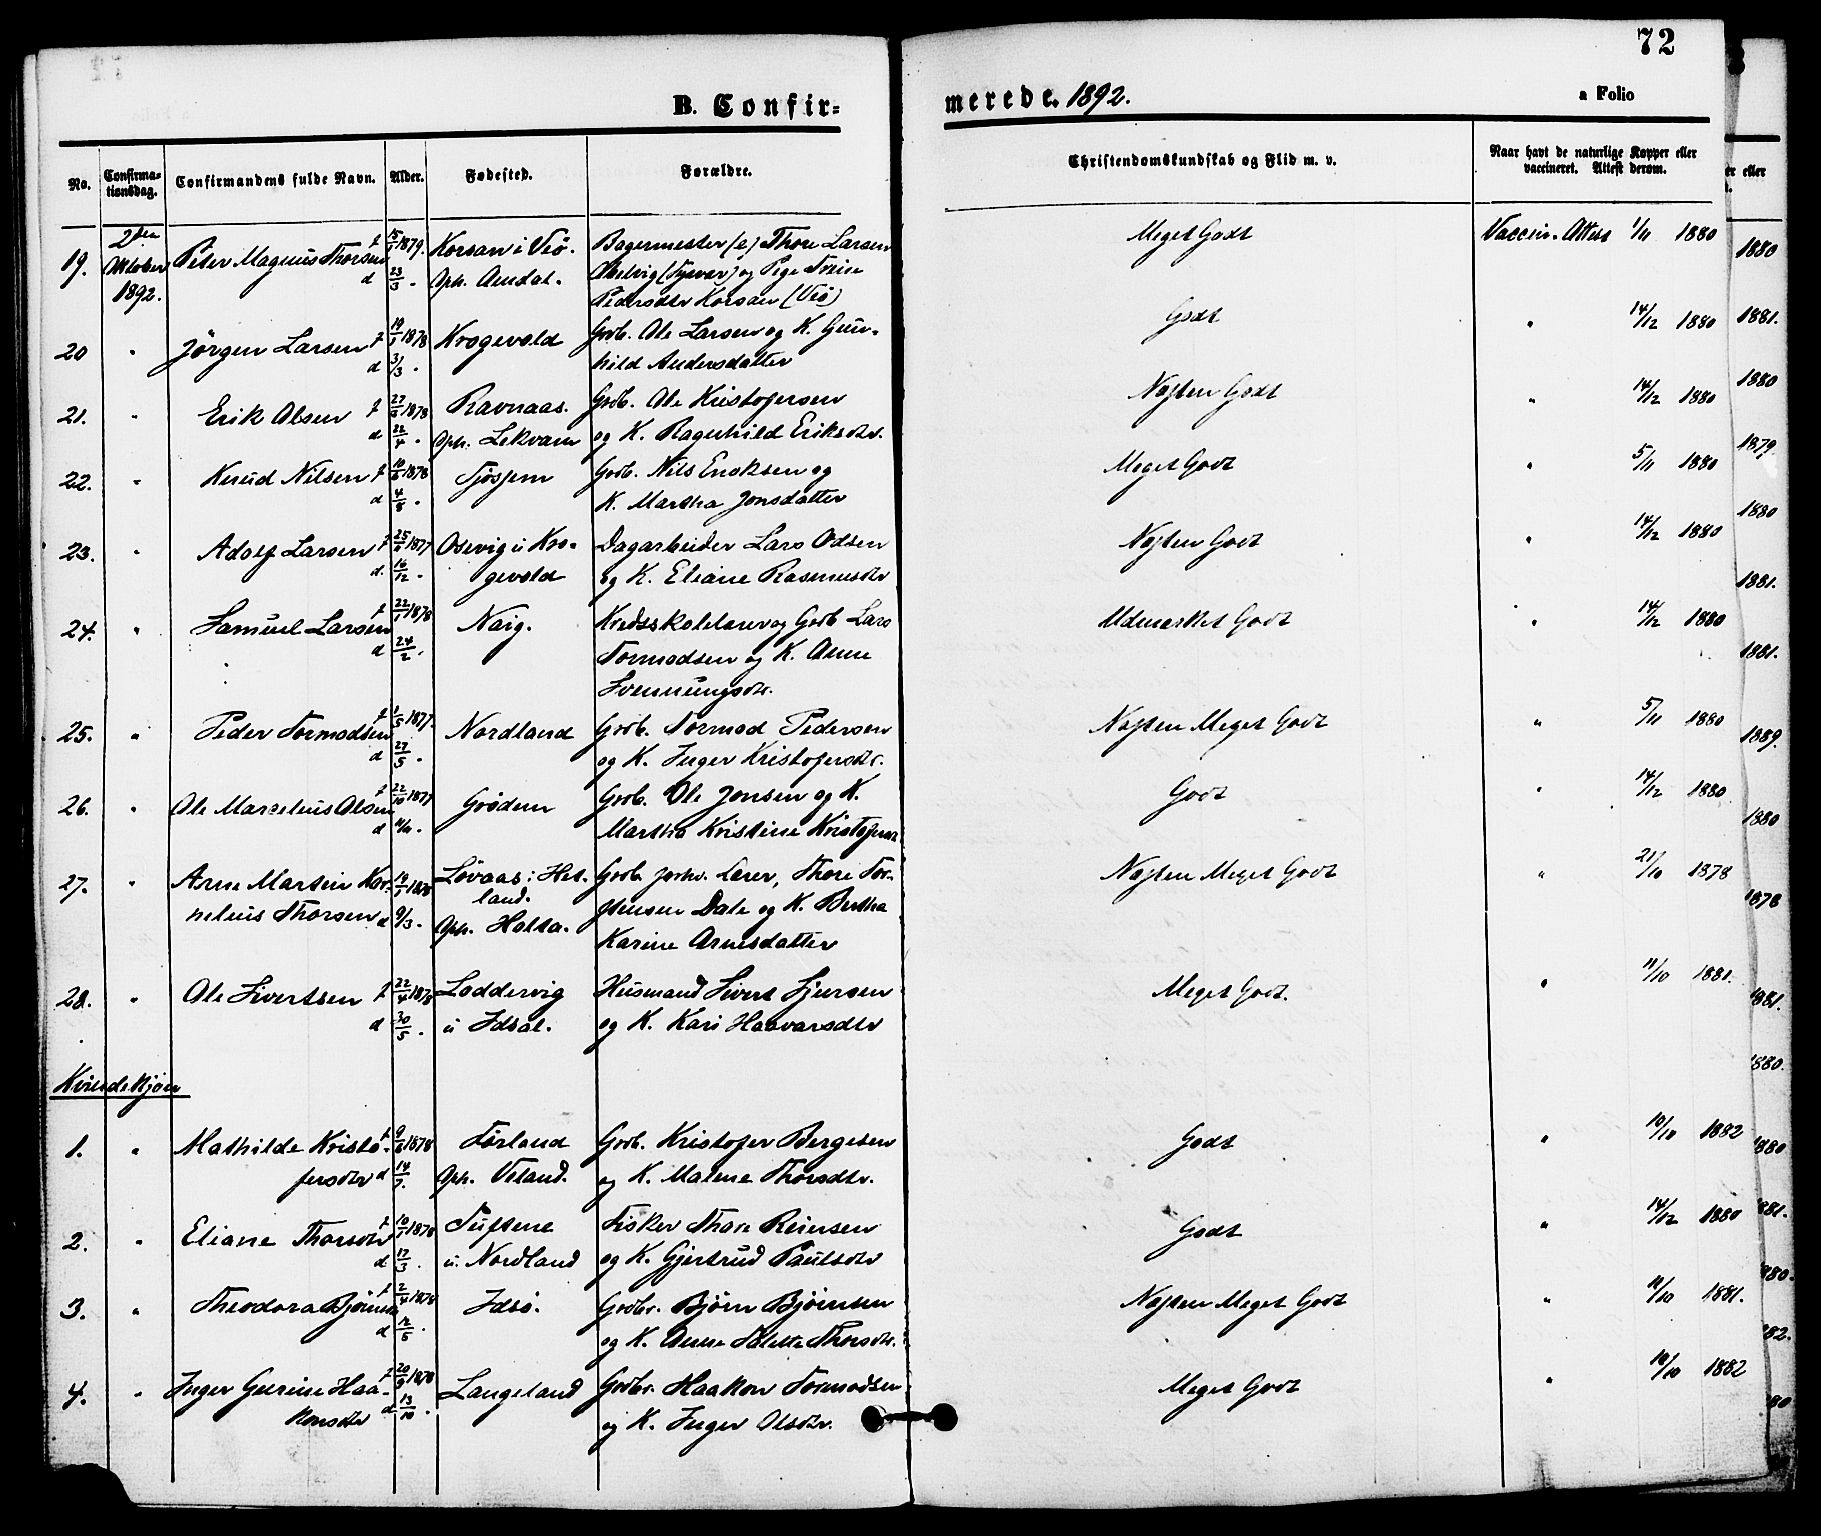 72
B. Confir-
merede. 1892.
a Folio
No.
Confirma-
tionsdag.
Confirmandens fulde Navn.
Alder.
Fødested.
Forældre.
Christendomskundskab og Flid m. v.
Naar havt de naturlige Kopper eller
vaccineret. Attest derom.
19. 2den Oktober 1892. Peter Magnus Thorsen f 1879. d 23/3. Korsan i Vsö. Oph. Amdal.
Bagermester (e) Thore Larsen
(Tysvær) og Pige
Pedersdtr Korsan (Vsö)
Meget Godt Vaccin. Attest 1/11 1880
20 " Jörgen Larsen f 19/1 1878 d 3/3. Krogevold
Grdb. Ole Larsen og K. Gun-
hild Andersdatter
Godt " 14/12 1880
21. " Erik Olsen f 1878 d 22/4. Ravnaas. Oph. Lekvam
Grdb. Ole Kristofersen
og K. Ragnhild Eriksdtr.
Nogten Godt " 14/12 1880
22. " Knud Nilsen f 10/6 1878 d 4/8. Tjösjem
Grdb. Nils Enoksen og
K. Martha Jonsdatter
Meget Godt " 5/11 1880
23. " Adolf Larsen f 1877 d. 16/12. Osevig i Kro-
gevold
Dagarbeider Lars Odsen
og K. Eliane Rasmusdtr
Nogten Godt " 14/12 1880
24. " Samuel Larsen f 22/1 1878 d 24/2. Naig.
Kredsskolelærer og Grdb Lars
Tormodsen og K. Anne
Svennungsdtr.
Udmærket Godt " 14/12 1880
25. " Peder Tormodsen f 1/5 1877. d 27/5. Nordland
Grdb. Tormod Pedersen
og K. Inger Kristofersdtr.
Nogten Meget Godt " 5/11 1880
26. " Ole Marselius Olsen f 22/10 1877 d 11/11. Grödem
Grdb. Ole Jonsen og K.
Martha Kristine
Godt " 14/12 1880
27. " Arne Martin Kor-
nelius Thorsen f 19/1 1878 d 9/3. Lövaas i Het-
land. Oph. Holta.
Grdb. forhv. Lærer, Thore Tor-
stensen Dale og K. Bertha
Karine Arnesdatter
Nogten Meget Godt " 21/10 1878
28. " Ole Sivertsen f 22/4 1878 d 30/5. Loddervig
i Idsal.
Husmand Sivert Sjursen
og K. Kari Haavarsdtr
Meget Godt. " 11/10 1881.
Kvindekjön
1. " Mathilde Kristo-
fersdtr f 9/6 1878 d 14/7. Törland Oph. Veland.
Grdb. Kristofer Bergesen
og K. Malene Thorsdtr.
Godt " 10/10 1882
2. " Eliane Thorsdtr f 10/1 1878 d 17/3. Tuftene
i. Nordland
Fisker Thore Reiersen
og K. Gjertrud Paulsdtr
Godt " 14/12 1880
3. " Theodora f 2/4 1878 d 12/5. Idsö.
Grdbr. Björn Björnsen
og K. Anne Thorsdtr.
Nogten Meget Godt " 11/10 1881.
4. " Inger Gurine Haa-
konsdtr f 20/9 1878 d 13/10. Langeland
Grdbr. Haakon Tormodsen
og K. Inger Olsdtr.
Meget Godt " 10/10 1882
er eller
1880
1881.
1880
1879
1880
1881.
1881.
1889.
1880
1878
1881.
1880.